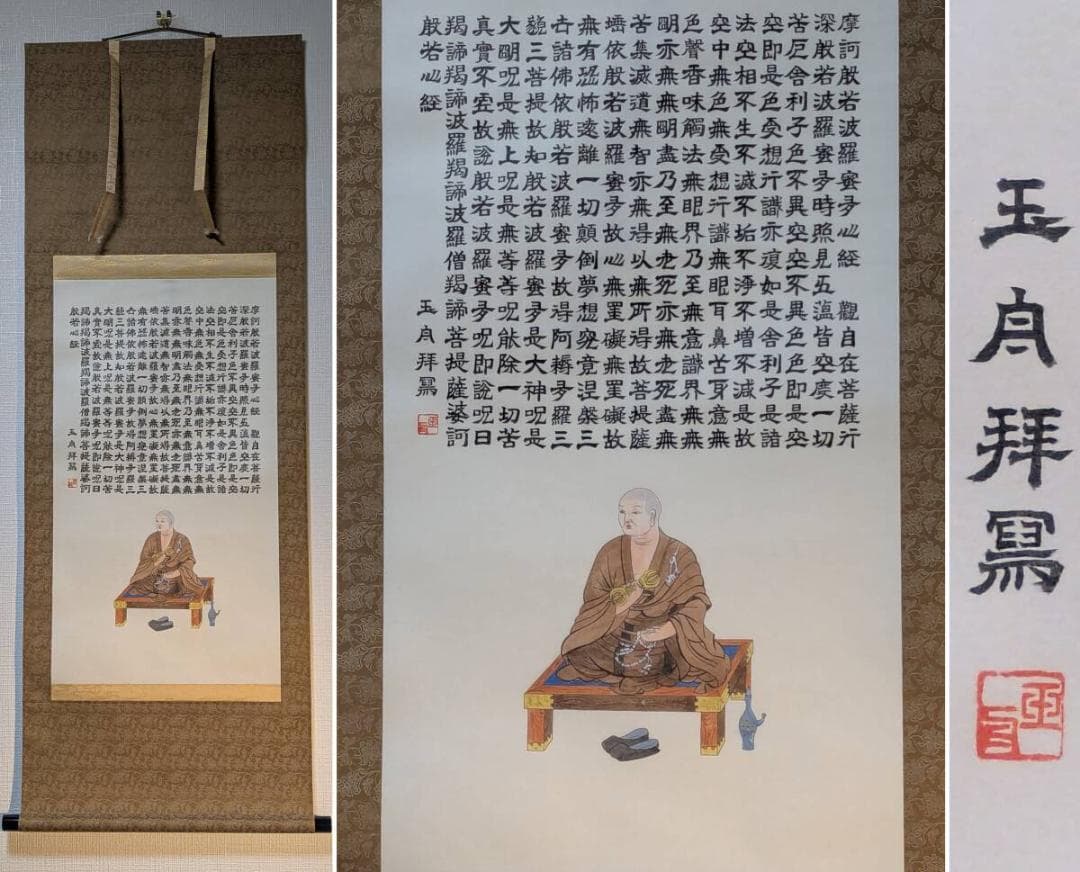 摩訶般若波羅蜜多心経　觀自在菩薩行
深般若波羅蜜多時照見五蘊皆空度一切
苦厄舍利子色不異空空不異色色即是空
空即是色受想行識亦復如是舍利子是諸
法空相不生不滅不垢不淨不增不減是故
空中無色無受想行識無眼耳鼻舌身意無
色聲香味觸法無眼界乃至無意識界無無
明亦無無明盡乃至無老死亦無老死盡無
苦集滅道無智亦無得以無所得故菩提薩
埵依般若波羅蜜多故心無罣礙無罣礙故
無有恐怖遠離一切顛倒夢想究竟涅槃三
世諸佛依般若波羅蜜多故得阿耨多羅三
藐三菩提故知般若波羅蜜多是大神呪是
大明呪是無上呪是無等等呪能除一切苦
真實不虛故說般若波羅蜜多呪即說呪曰
羯諦羯諦波羅羯諦波羅僧羯諦菩提薩婆訶
般若心経
玉舟拝寫
玉舟拝寫